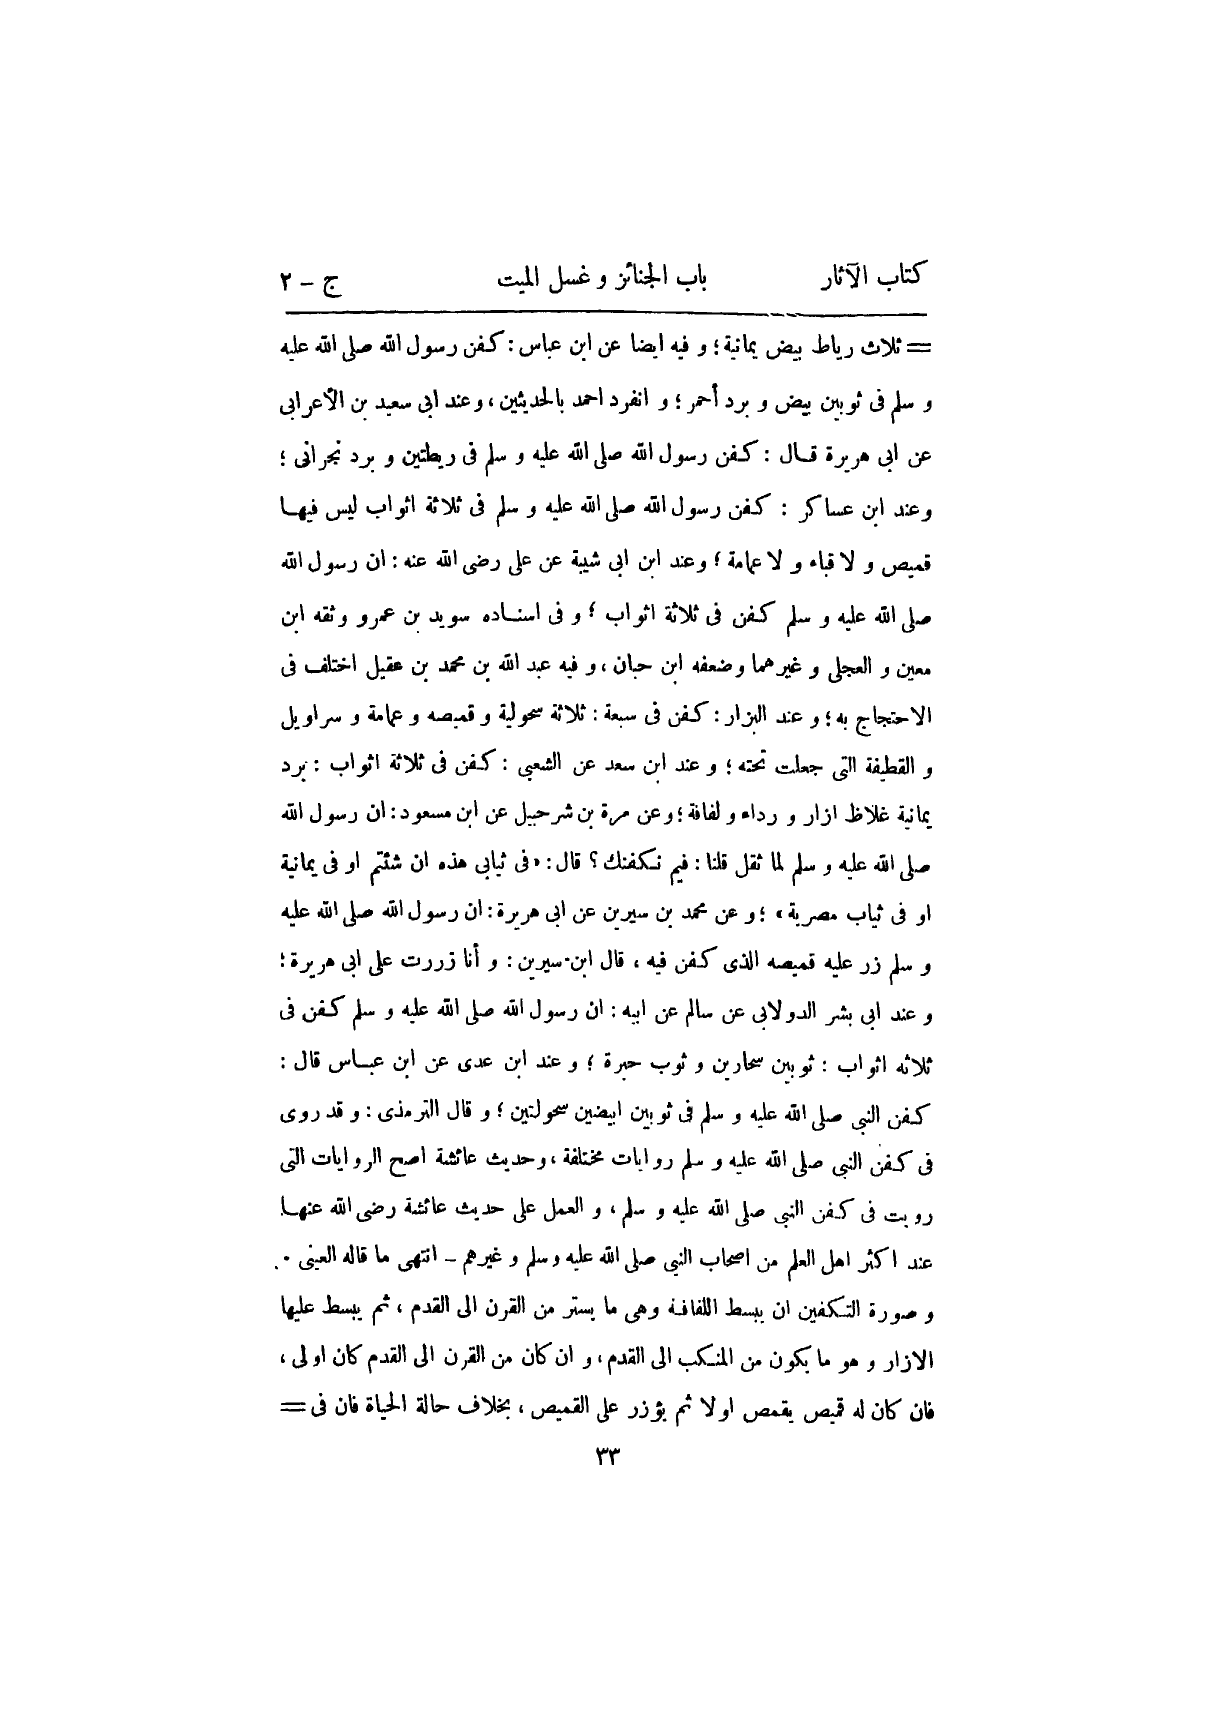 كتاب الآثار باب الجنائز و غسل الميت ج – ٢
= ثلاث رياط بيض يمانية؛ و فيه ايضا عن ابن عباس: كفن رسول الله صلى الله عليه
و سلم فى ثوبين بيض و برد أحمر؛ و انفرد احمد بالحديثين، وعند ابى سعيد بن الأعرابى
عن ابى هريرة قال: كفن رسول الله صلى الله عليه و سلم فى ريطتين و برد نجرانى؛
وعند ابن عساكر: كفن رسول الله صلى الله عليه و سلم فى ثلاثة اثواب ليس فيها
قميص و لا قباء و لا عمامة؛ وعند ابن ابى شيبة عن على رضى الله عنه: ان رسول الله
صلى الله عليه و سلم كفن فى ثلاثة اثواب؛ و فى اسناده سويد بن عمرو وثقه ابن
معين و العجلى و غيرهما وضعفه ابن حبان، و فيه عبد الله بن محمد بن عقيل اختلف فى
الاحتجاج به؛ و عند البزار: كفن فى سبعة: ثلاثة سحولية و قميصه و عمامة و سراويل
و القطيفة التى جعلت تحته؛ و عند ابن سعد عن الشعبى: كفن فى ثلاثة اثواب: برد
يمانية غلاظ ازار و رداء و لفافة؛ وعن مرة بن شرحبيل عن ابن مسعود: ان رسول الله
صلى الله عليه و سلم لما ثقل قلنا: فيم نكفنك؟ قال: «فى ثيابى هذه ان شئتم او فى يمانية
او فى ثياب مصرية»؛ و عن محمد بن سيرين عن ابى هريرة: ان رسول الله صلى الله عليه
و سلم زر عليه قميصه الذى كفن فيه، قال ابن سيرين: و أنا زررت على ابى هريرة؛
و عند ابى بشر الدولابى عن سالم عن ابيه: ان رسول الله صلى الله عليه و سلم كفن فى
ثلاثه اثواب: ثوبين سحارين و ثوب حبرة؛ و عند ابن عدى عن ابن عباس قال:
كفن النبى صلى الله عليه و سلم فى ثوبين ابيضين سحولتين؛ و قال الترمذى: و قد روى
فى كفن النبى صلى الله عليه و سلم روايات مختلفة، وحديث عائشة اصح الروايات التى
رويت فى كفن النبى صلى الله عليه و سلم، و العمل على حديث عائشة رضى الله عنها
عند اكثر اهل العلم من اصحاب النبى صلى الله عليه وسلم و غيرهم – انتهى ما قاله العينى ٠
و صورة التكفين ان يبسط اللفافة وهى ما يستر من القرن الى القدم، ثم يبسط عليها
الازار و هو ما يكون من المنكب الى القدم، و ان كان من القرن الى القدم كان اولى،
فان كان له قميص يقمص اولا ثم يؤزر على القميص، بخلاف حالة الحياة فان فى =
٣٣